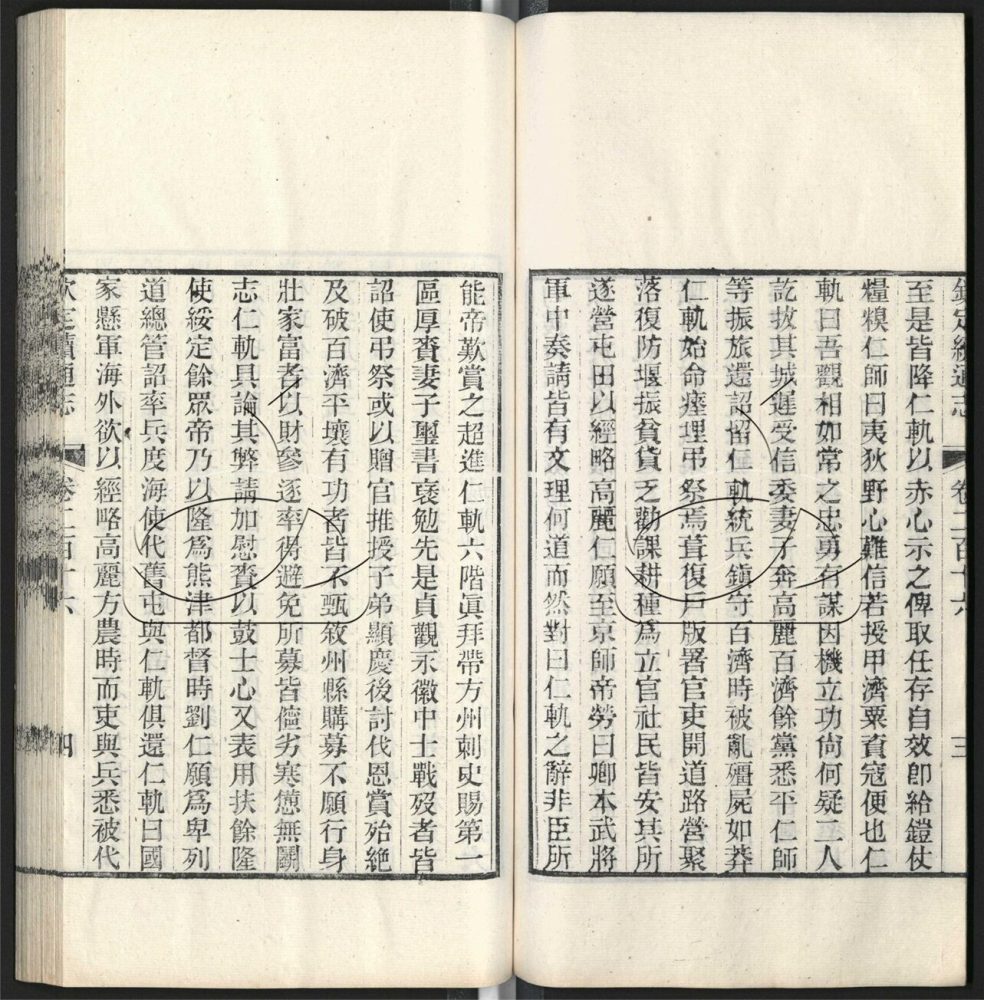 欽定續通志 卷二百十六 三
至是皆降仁軌以赤心示之俾取任存自效即給鎧仗
糧糗仁師曰夷狄野心難信若授甲濟粟資寇便也仁
軌曰吾觀相如常之忠勇有謀因機立功尚何疑二人
訖拔其城遲受信委妻子奔高麗百濟餘黨悉平仁師
等振旅還詔留仁軌統兵鎮守百濟時被亂殭屍如莽
仁軌始命瘞埋弔祭焉葺復戶版署官吏開道路營聚
落復防堰振貧貸乏勸課耕種為立官社民皆安其所
遂營屯田以經略高麗仁願至京師帝勞曰卿本武將
軍中奏請皆有文理何道而然對曰仁軌之辭非臣所
能帝歎賞之超進仁軌六階眞拜帶方州刺史賜第一
區厚賚妻子璽書褒勉先是貞觀永徽中士戰歿者皆
詔使弔祭或以贈官推授子弟顯慶後討伐恩賞殆絶
及破百濟平壤有功者皆不甄敘州縣購募不願行身
壯家富者以財參逐率得避免所募皆儜劣寒憊無鬬
志仁軌具論其弊請加慰賚以鼓士心又表用扶餘隆
使綏定餘眾帝乃以隆為熊津都督時劉仁願為卑列
道總管詔率兵度海使代舊屯與仁軌俱還仁軌曰國
家懸軍海外欲以經略高麗方農時而吏與兵悉被代
欽定續通志 卷二百十六 四